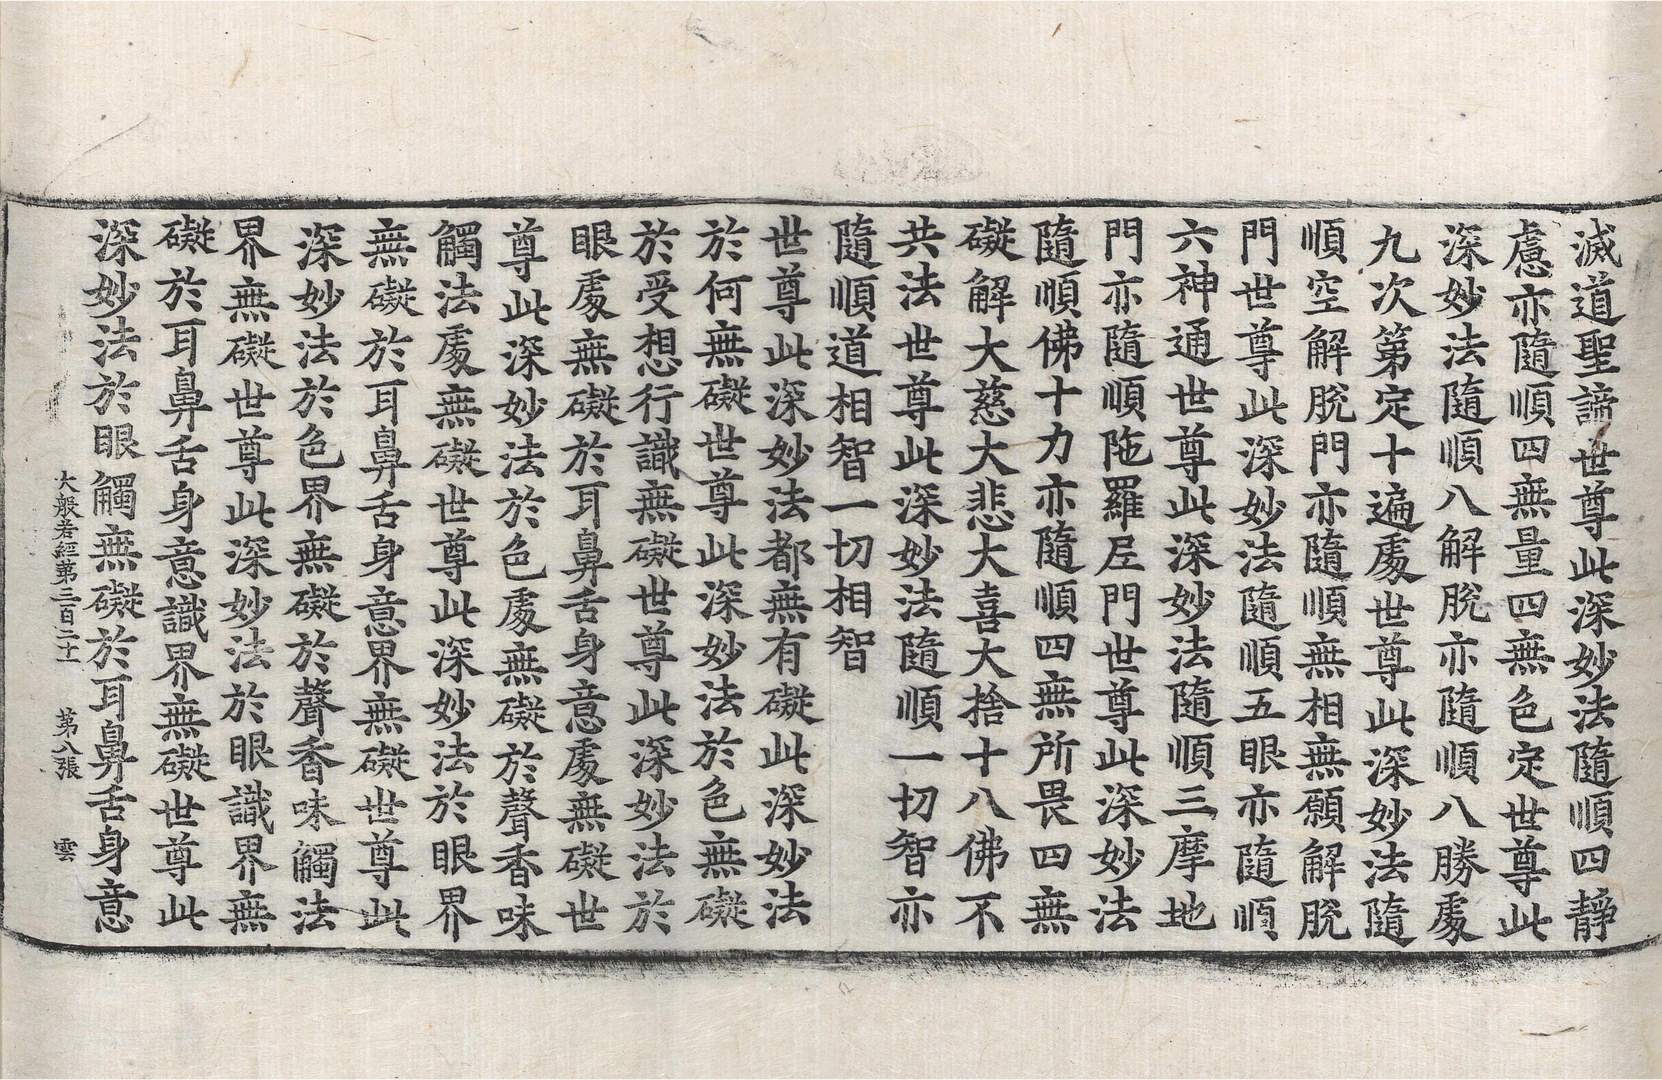 滅道聖諦世尊此深妙法隨順四靜
慮亦隨順四無量四無色定世尊此
深妙法隨順八解脫亦隨順八勝處
九次第定十遍處世尊此深妙法隨
順空解脫門亦隨順無相無願解脫
門世尊此深妙法隨順五眼亦隨順
六神通世尊此深妙法隨順三摩地
門亦隨順陁羅尼門世尊此深妙法
隨順佛十力亦隨順四無所畏四無
礙解大慈大悲大喜大捨十八佛不
共法世尊此深妙法隨順一切智亦
隨順道相智一切相智
世尊此深妙法都無有礙此深妙法
於何無礙世尊此深妙法於色無礙
於受想行識無礙世尊此深妙法於
眼處無礙於耳鼻舌身意處無礙世
尊此深妙法於色處無礙於聲香味
觸法處無礙世尊此深妙法於眼界
無礙於耳鼻舌身意界無礙世尊此
深妙法於色界無礙於聲香味觸法
界無礙世尊此深妙法於眼識界無
礙於耳鼻舌身意識界無礙世尊此
深妙法於眼觸無礙於耳鼻舌身意
大般若經第三百二十一 第八張 雲